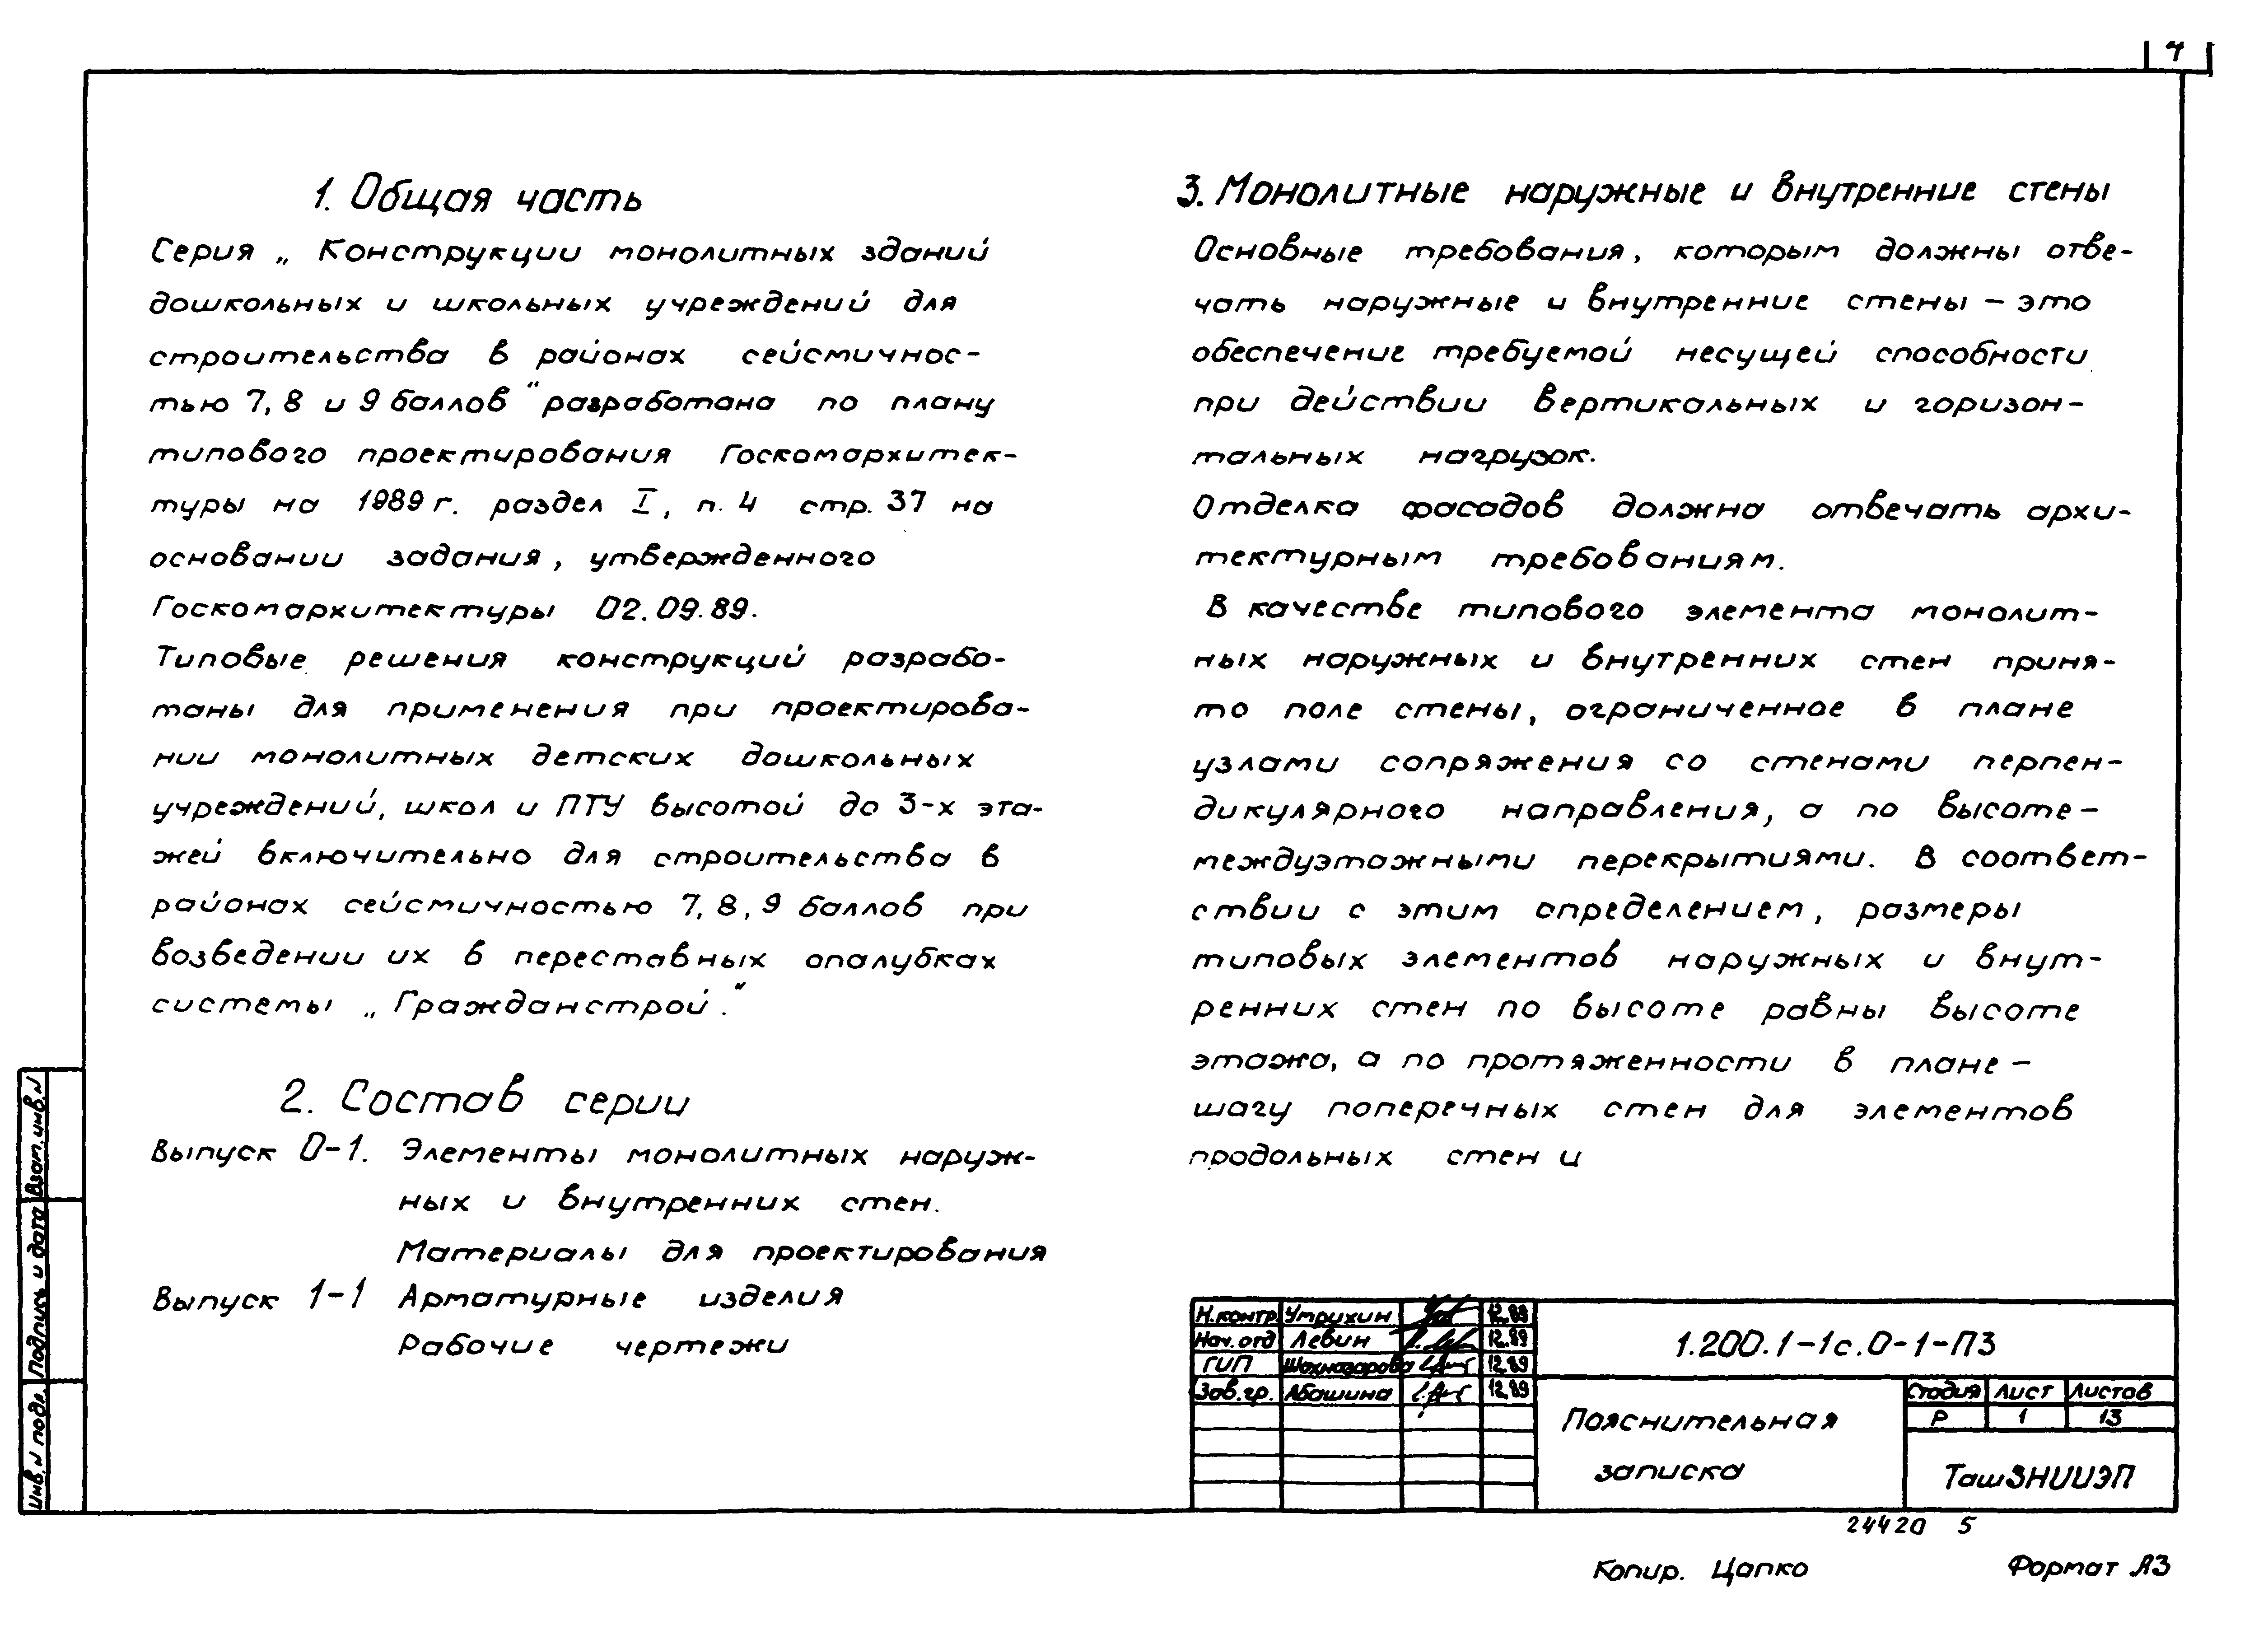 4
1. Общая часть
Серия „ Конструкции монолитных зданий
дошкольных и школьных учреждений для
строительства в районах сейсмичнос-
тью 7, 8 и 9 баллов“ разработана по плану
типового проектирования Госкомархитек-
туры на 1989 г. раздел I, п. 4 стр. 37 на
основании задания, утвержденного
Госкомархитектуры 02.09.89.
Типовые решения конструкций разрабо-
таны для применения при проектирова-
нии монолитных детских дошкольных
учреждений, школ и ПТУ высотой до 3-х эта-
жей включительно для строительства в
районах сейсмичностью 7, 8, 9 баллов при
возведении их в переставных опалубках
системы „ Гражданстрой.“
2. Состав серии
Выпуск 0-1. Элементы монолитных наруж-
ных и внутренних стен.
Материалы для проектирования
Выпуск 1-1 Арматурные изделия
Рабочие чертежи
3. Монолитные наружные и внутренние стены
Основные требования, которым должны отве-
чать наружные и внутренние стены – это
обеспечение требуемой несущей способности
при действии вертикальных и горизон-
тальных нагрузок.
Отделка фасадов должна отвечать архи-
тектурным требованиям.
В качестве типового элемента монолит-
ных наружных и внутренних стен приня-
то поле стены, ограниченное в плане
узлами сопряжения со стенами перпен-
дикулярного направления, а по высоте –
междуэтажными перекрытиями. В соответ-
ствии с этим определением, размеры
типовых элементов наружных и внут-
ренних стен по высоте равны высоте
этажа, а по протяженности в плане –
шагу поперечных стен для элементов
продольных стен и
Н.контр Утрихин 12.89
Нач.отд Левин 12.89
ГИП Шахназарова 12.89
Зав.гр. Абашина 12.89
1.200.1-1с.0-1-ПЗ
Пояснительная
записка
Стадия Лист Листов
Р 1 13
ТашЗНИИЭП
24420 5
Копир. Цапко Формат А3
Взам.инв.N
Подпись и дата
Инв.N подл.